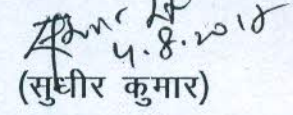 4.8.2018
(सुधीर कुमार)